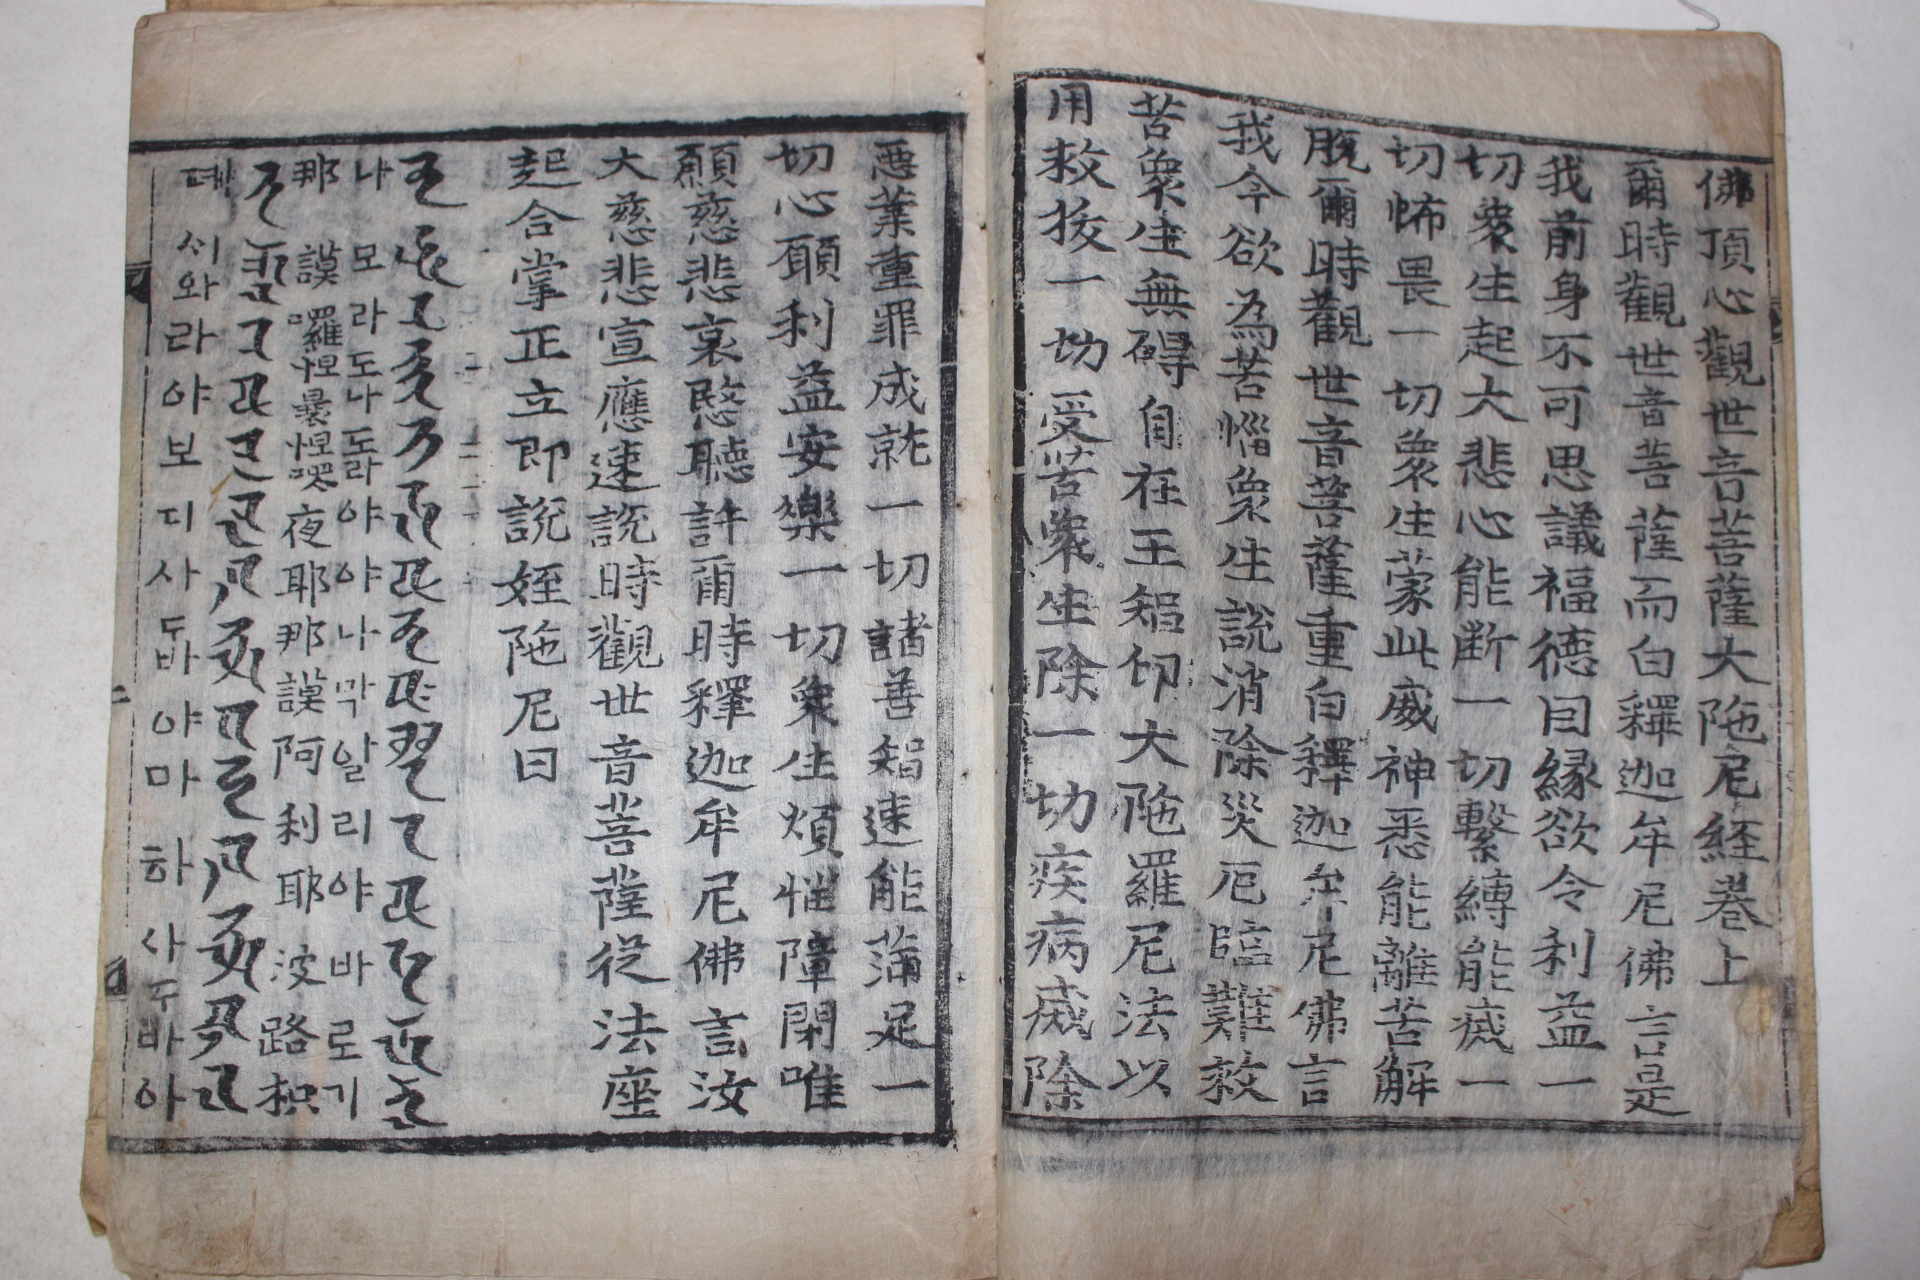 佛頂心觀世音菩薩大陁尼経巻上
爾時觀世音菩薩而白釋迦牟尼佛言是
我前身不可思議福德因縁欲令利益一
切衆生起大悲心能斷一切繫縛能滅一
切怖畏一切衆生蒙此威神悉能離苦解
脫爾時觀世音菩薩重白釋迦牟尼佛言
我今欲為苦惱衆生說消除災厄臨難救
苦衆生無礙自在王智印大陁羅尼法以
用救拔一切受苦衆生除一切疾病滅除
惡業重罪成就一切諸善智速能滿足一
切心願利益安樂一切衆生煩惱障閉唯
願慈悲哀愍聽許爾時釋迦牟尼佛言汝
大慈悲宣應速說時觀世音菩薩從法座
起合掌正立即說姪陁尼曰
나모라도나도라야야나막알리야바로기
那謨囉怛曩怛㘑夜耶那謨阿利耶波路枳
데시와라야보디사두바야마하사두바아